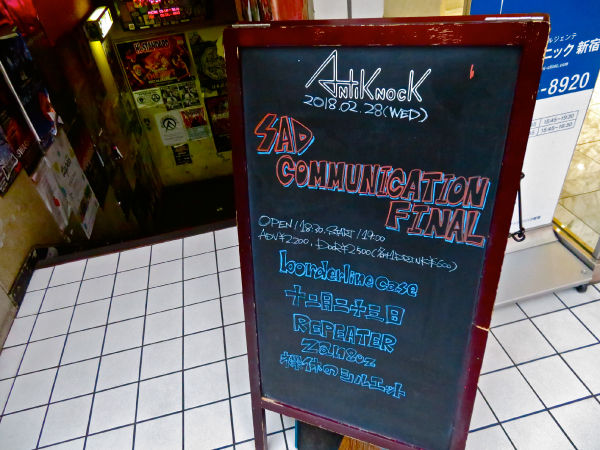 AntiKnock
2018.02.28(WED)
SAD
COMMUNICATION
FINAL
OPEN/18:30, START/19:00
ADV¥2200, DOOR¥2500(
borderline case
十二月二十三日
REPEATER
裸体のシルエット
ニック 新宿
-8920
15:45~19:15
15:45~19:15